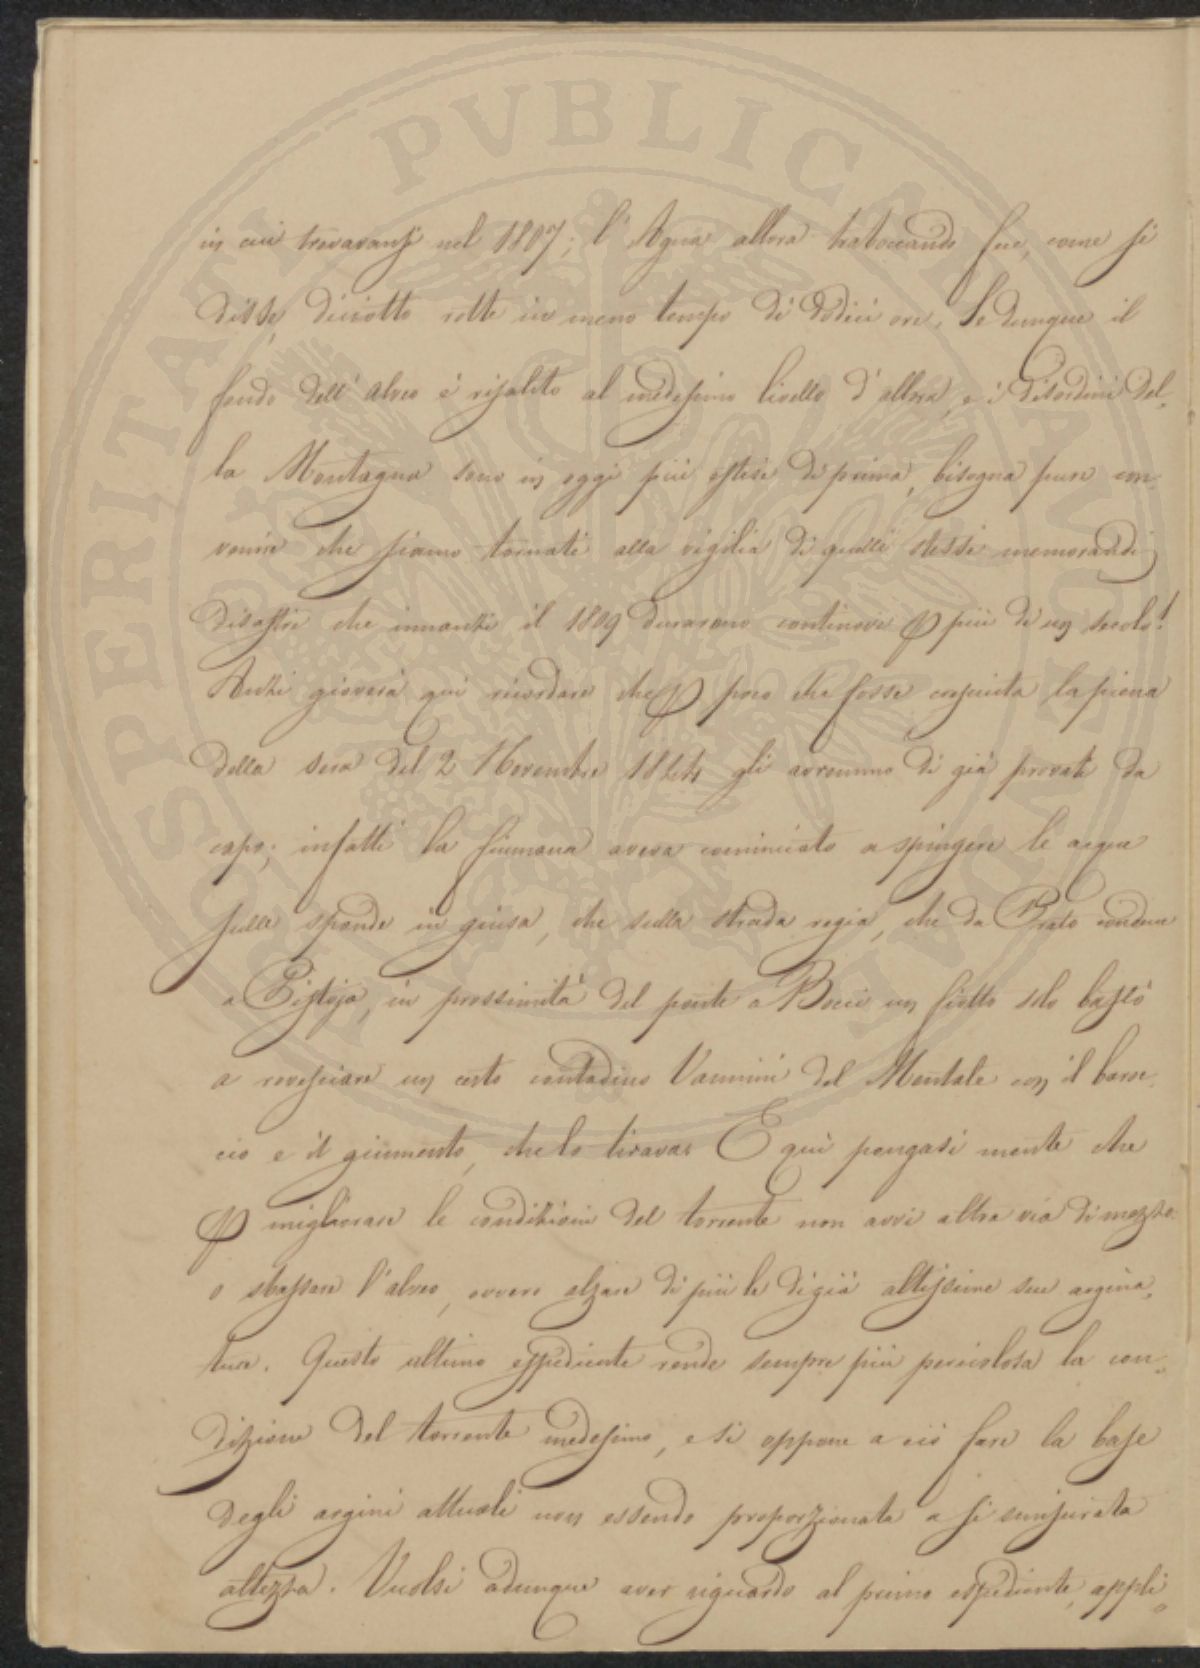 in cui trovavansi nel 1807; l'Agna allora traboccando fece, come si
disse, diciotto rotte in meno tempo di dodici ore. Se dunque il
fondo dell'alveo è risalito al medesimo livello d'allora, e i disordini del-
la Montagna sono in oggi più estesi di prima, bisogna pure con-
venire che siamo tornati alla vigilia di quelli stessi memorandi
disastri che innanzi il 1809 durarono continovi p più di un secolo!
Anzi gioverà qui ricordare che p poco che fosse cresciuta la piena
della sera del 2 Novembre 1844 gli avremmo di già provati da
capo; infatti la fiumana aveva cominciato a spingere le acque
sulle sponde in guisa, che sulla strada regia, che da Prato conduce
a Pistoja, in prossimità del ponte a Bocci un fiotto solo bastò
a rovesciare un certo contadino Vannini del Montale con il baroc-
cio e il giumento, che lo tirava. E quì pongasi mente che
p migliorare le condizioni del torrente non avvi altra via di mezzo
o sbassare l'alveo, ovvero alzare di più le di già altissime sue argina-
ture. Questo ultimo espediente rende sempre più pericolosa la con-
dizione del torrente medesimo, e si oppone a ciò fare la base
degli argini attuali non essendo proporzionata a sì smisurata
altezza. Vuolsi adunque aver riguardo al primo espediente, appli-
PUBLICAE